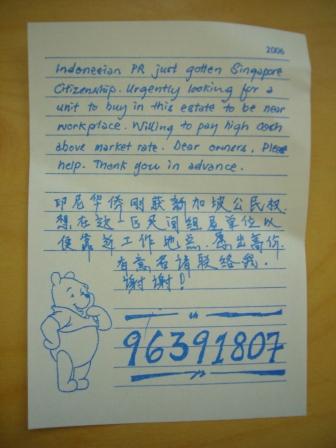 2006
Indonesian PR just gotten Singapore
Citizenship. Urgently looking for a
unit to buy in this estate to be near
workplace. Willing to pay high cash
above market rate. Dear owners, Please
help. Thank you in advance.
印尼华侨刚获新加坡公民权.
想在这一区买间组屋单位以
便靠近工作地点. 愿出高价.
有意者请联络我.
谢谢!
96391807